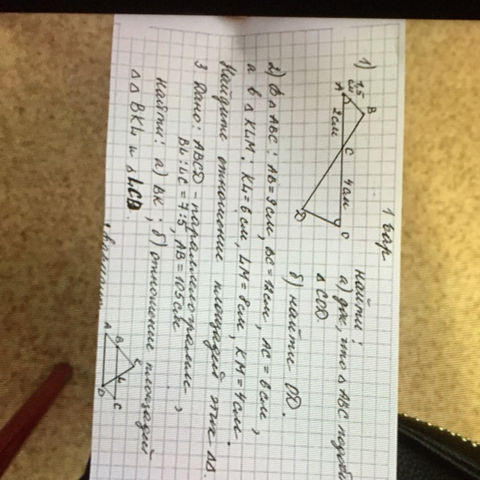 1 вар
1)
1,5 см
B
A
2 см
C
4 см
O
D
Найти:
а) док, что △ ABC подоб
△ COD.
б) найти OD.
2) В △ ABC: AB = 9 см, BC = 12 см, AC = 6 см,
а в △ KLM: KL = 6 см, LM = 8 см, KM = 4 см.
Найдите отношение площадей этих △△.
3 Дано: ABCD - параллелограмм,
BL:LC = 7:5, AB = 10,5 см.
Найти: а) BK; б) отношение площадей
△△ BKL и △ LCD.
A
B
K
L
C
D